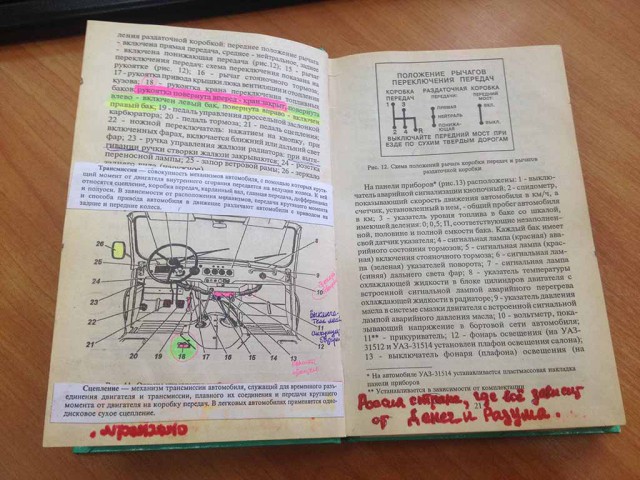 ления раздаточной коробкой: переднее положение рычага
- включена прямая передача, среднее - нейтральное, заднее
- включена понижающая передача (рис. 12); 15 - рычаг
переключения передач: схема переключения показана на
рукоятке (рис. 12); 16 - рычаг стояночного тормоза;
17 - рукоятка привода крышки люка вентиляции и отопления
кузова; 18 - рукоятка крана переключения топливных
баков: рукоятка повернута вперед - кран закрыт, повернута
влево - включен левый бак, повернута вправо - включен
правый бак; 19 - педаль управления дроссельной заслонкой
карбюратора; 20 - педаль тормоза; 21 - педаль сцепления;
22 - ножной переключатель: нажатием на кнопку, при
включенных фарах, включается ближний или дальний свет
фар; 23 - ручка управления жалюзи радиатора: при вытя-
гивании ручки створки жалюзи закрываются; 24 - розетка
переносной лампы; 25 - запор ветровой рамы; 26 - зеркало
Трансмиссия — совокупность механизмов автомобиля, с помощью которых крутя-
щий момент от двигателя внутреннего сгорания передается на ведущие колеса. К ней
относятся сцепление, коробка передач, карданный вал, главная передача, дифференциал
и полуоси. В зависимости от расположения механизмов, передачи крутящего момента
и способа привода автомобили в движение различают автомобили с приводом на
задние и передние колеса.
26
1
2
3
4
5
6
7
8
9
10
11
12
25
24
23
22
21
20
19
18
16
17
15
14
13
Сцепление — механизм трансмиссии автомобиля, служащий для временного разъ-
единения двигателя и трансмиссии, плавного их соединения и передачи крутящего
момента от двигателя на коробку передач. В легковых автомобилях применяется одно-
дисковое сухое сцепление.
ПОЛОЖЕНИЕ РЫЧАГОВ
ПЕРЕКЛЮЧЕНИЯ ПЕРЕДАЧ
КОРОБКА
ПЕРЕДАЧ
РАЗДАТОЧНАЯ КОРОБКА
ПЕРЕДАЧИ:
ПЕРЕДНИЙ
МОСТ:
1 3
2 4 R
ПРЯМАЯ
НЕЙТРАЛЬ
ПОНИЖА-
ЮЩАЯ
ВКЛ.
ВЫКЛ.
ВЫКЛЮЧАЙТЕ ПЕРЕДНИЙ МОСТ ПРИ
ЕЗДЕ ПО СУХИМ ТВЕРДЫМ ДОРОГАМ
Рис. 12. Схема положений рычага коробки передач и рычагов
раздаточной коробки
На панели приборов* (рис.13) расположены: 1 - выклю-
чатель аварийной сигнализации кнопочный; 2 - спидометр,
показывающий скорость движения автомобиля в км/ч, а
счетчик, установленный в нем, - общий пробег автомобиля
в км; 3 - указатель уровня топлива в баке со шкалой,
имеющей деления: 0; 0,5; П, соответствующие незаполнен-
ной, половине и полной емкости бака. Каждый бак имеет
свой датчик указателя; 4 - сигнальная лампа (красная) ава-
рийного состояния тормозов; 5 - сигнальная лампа (крас-
ная) включения стояночного тормоза; 6 - сигнальная лам-
па (зеленая) указателей поворота; 7 - сигнальная лампа
(синяя) дальнего света фар; 8 - указатель температуры
охлаждающей жидкости в блоке цилиндров двигателя с
встроенной сигнальной лампой аварийного перегрева
охлаждающей жидкости в радиаторе; 9 - указатель давления
масла в системе смазки двигателя с встроенной сигнальной
лампой аварийного давления масла; 10 - вольтметр, пока-
зывающий напряжение в бортовой сети автомобиля;
11** - прикуриватель; 12 - фонарь освещения (на УАЗ-
31512 и УАЗ-31514 установлен плафон освещения салона);
13 - выключатель фонаря (плафона) освещения (на
* На автомобиле УАЗ-31514 устанавливается пластмассовая накладка
панели приборов.
** Устанавливается в зависимости от комплектации
21
Россия страна, где всё зависит
от Денег и Разума.